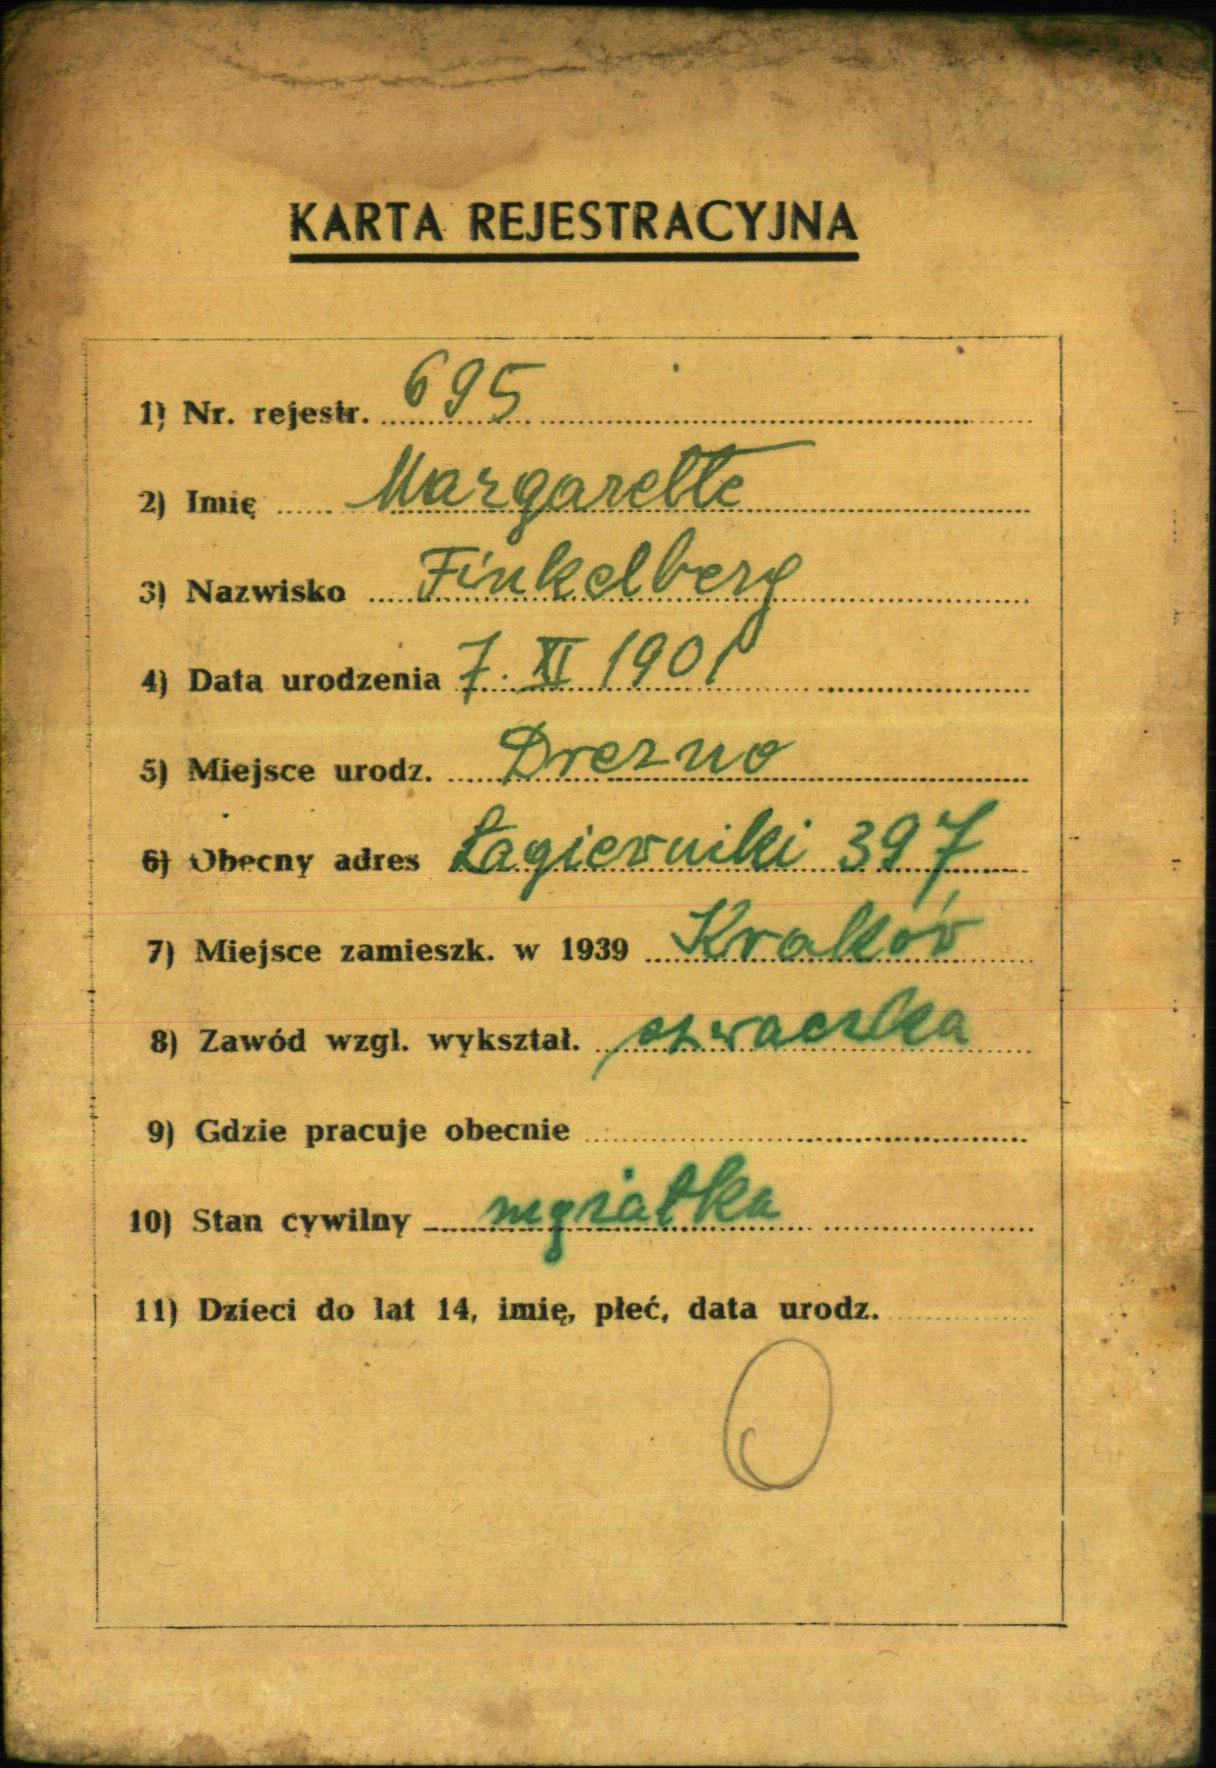 KARTA REJESTRACYJNA
1) Nr. rejestr. 695
2) Imię Margarette
3) Nazwisko Finkelberg
4) Data urodzenia 7. XI 1901
5) Miejsce urodz. Drezno
6) Obecny adres Łagiewniki 397
7) Miejsce zamieszk. w 1939 Kraków
8) Zawód wzgl. wykształ. szwaczka
9) Gdzie pracuje obecnie
10) Stan cywilny mężatka
11) Dzieci do lat 14, imię, płeć, data urodz.